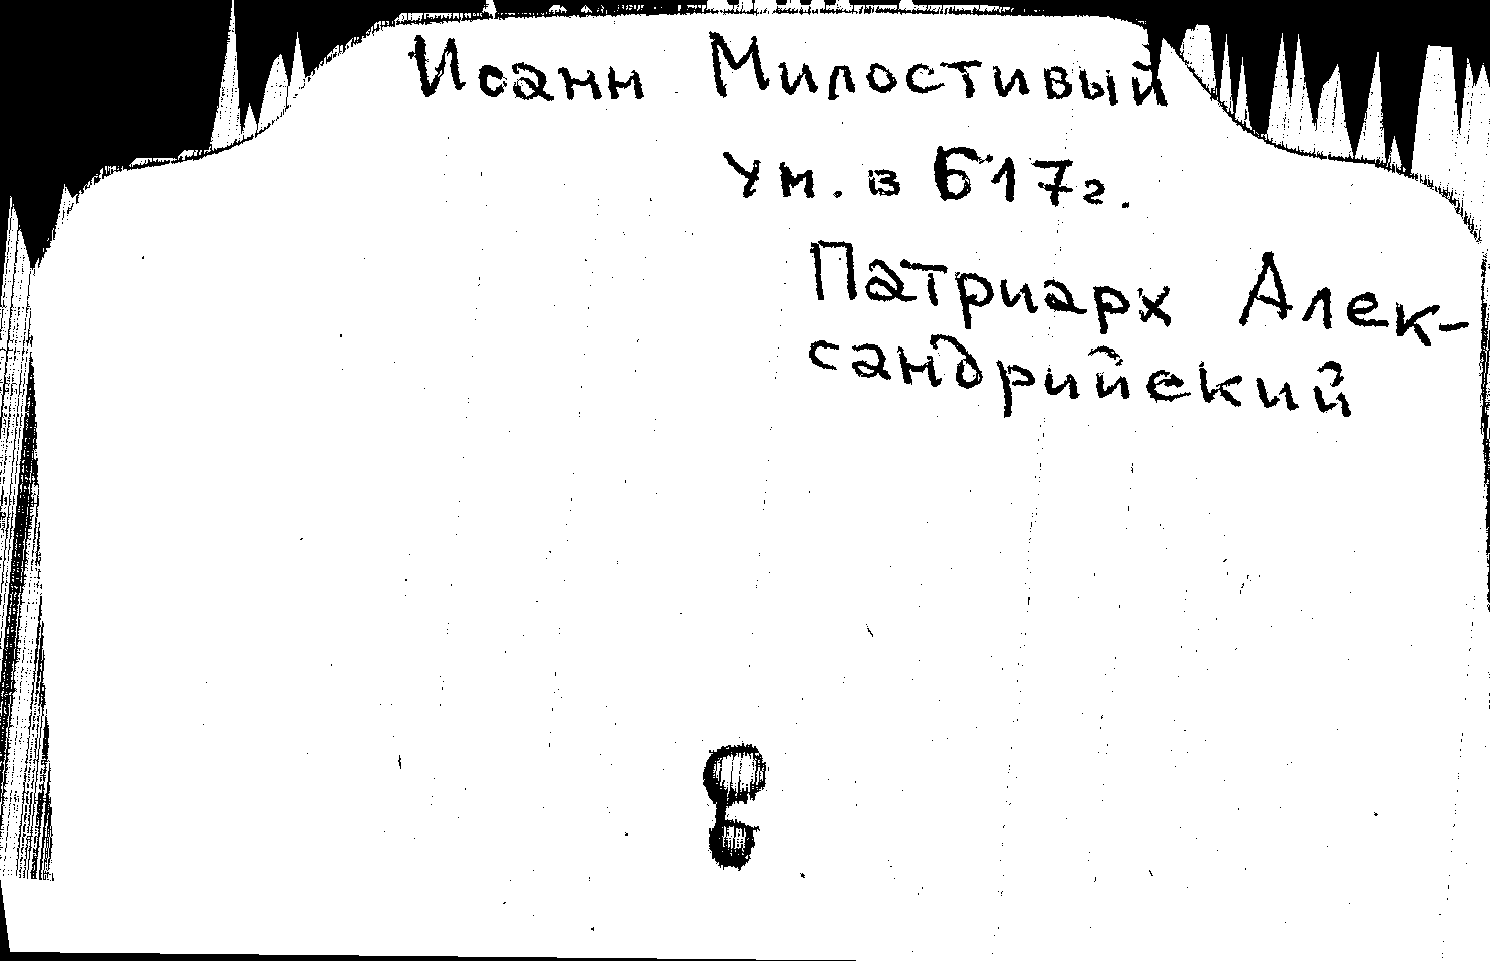 Иоанн Милостивый
Ум. в 617г.
Патриарх Алек-
сандрийский